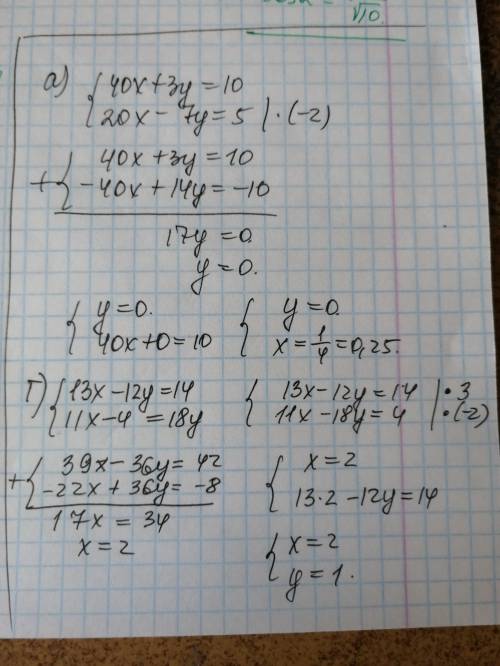 √10.
а) { 40x+3y=10
20x-7y=5 | ·(-2)
+ { 40x+3y=10
-40x+14y=-10
17y=0.
y=0.
{ y=0.
40x+0=10
{ y=0.
x=1/4=0,25.
г) { 13x-12y=14
11x-4=18y
{ 13x-12y=14 | ·3
11x-18y=4 | ·(-2)
+ { 39x-36y=42
-22x+36y=-8
17x=34
x=2
{ x=2
13·2-12y=14
{ x=2
y=1.